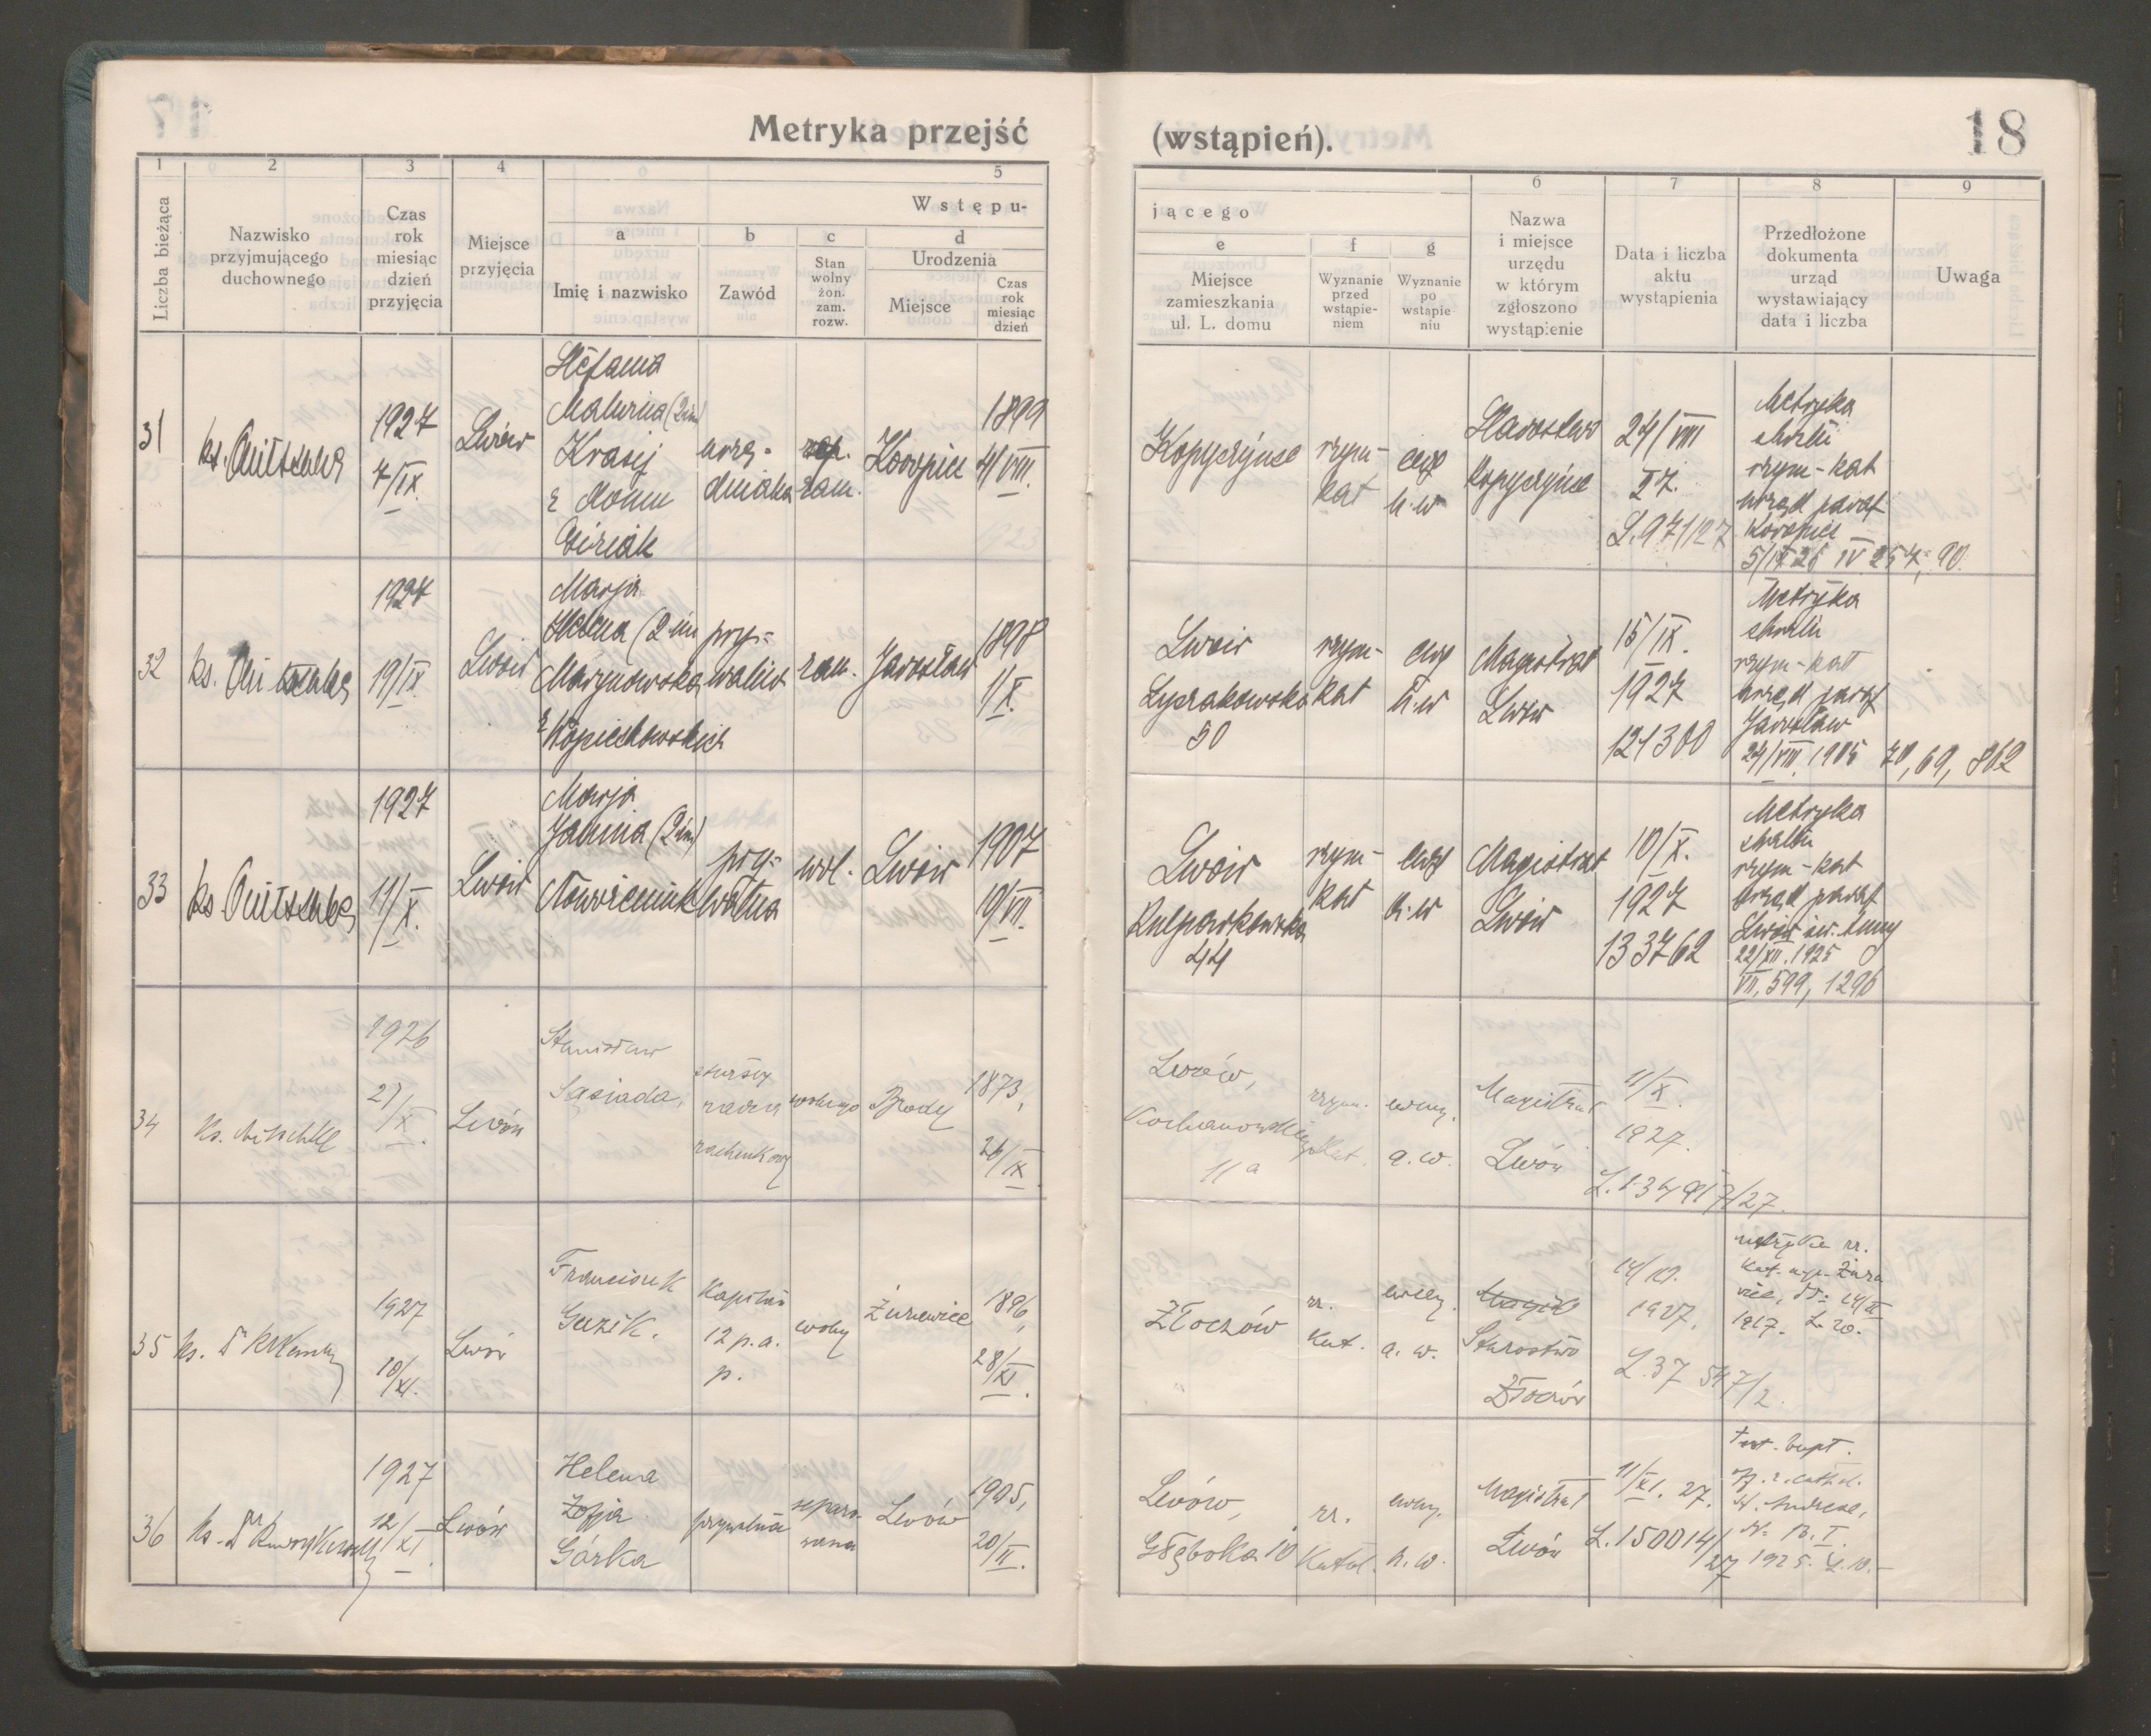 Metryka przejść
(wstąpień).
18
1
2
3
4
5
6
7
8
9
Liczba bieżąca
Nazwisko
przyjmującego
duchownego
Czas
rok
miesiąc
dzień
przyjęcia
Miejsce
przyjęcia
Wstępu-
jącego
a
Imię i nazwisko
b
Zawód
c
Stan
wolny
żon.
zam.
rozw.
d
Urodzenia
Miejsce
Czas
rok
miesiąc
dzień
e
Miejsce
zamieszkania
ul. L. domu
f
Wyznanie
przed
wstąpie-
niem
g
Wyznanie
po
wstąpie-
niu
Nazwa
i miejsce
urzędu
w którym
zgłoszono
wystąpienie
Data i liczba
aktu
wystąpienia
Przedłożone
dokumenta
urząd
wystawiający
data i liczba
Uwaga
31
ks.
1927
7/IX.
Lwów
Stefania
Malwina (2 im)
Krasij
z domu
urzę-
dniczka
zam.
Koropiec
1899
4/VIII.
Kopyczyńce
rzym-
kat
ewg
h.w
Starostwo
Kopyczyńce
24/VIII
27.
L.971/27
Metryka
chrztu
rzym-kat
urząd paraf
Koropiec
5/IX 26 IV 254, 90.
32
ks.
1927
19/IX.
Lwów
Marja
Helena (2 im
z
pry-
watna
zam.
Jarosław
1898
1/X.
Lwów
Łyczakowska
50
rzym-
kat
ewg
h.w
Magistrat
Lwów
15/IX.
1927
121300
Metryka
chrztu
rzym-kat
urząd paraf
Jarosław
24/VIII. 1905 70, 69, 862
33
ks.
1927
11/X.
Lwów
Marja
Janina (2 im)
pry-
watna
wol.
Lwów
1907
19/VII.
Lwów
Kulparkowska
44
rzym-
kat
ewg
h.w
Magistrat
Lwów
10/X.
1927
133762
Metryka
chrztu
rzym-kat
urząd paraf
Lwów św. Anny
22/XII. 1925
VII, 599, 1296
34
ks.
1926
27/X.
Lwów
Stanisław
Sąsiada,
starszy
radca
rachunkowy
wolnego
Brody
1873,
26/IX.
Lwów,
Kochanowskiego
11a
rzym.
kat.
ewang.
a.w.
Magistrat
Lwów
11/X.
1927.
L. 134917/27.
35
ks. Dr
1927
10/XI.
Lwów
Franciszek
Guzik.
Kapitan
12 p. a.
p.
wolny
Żurawice
1896,
28/XI.
Złoczów
rz.
kat.
a. w.
Starostwo
Złoczów
1927.
L.37 547/2
1917. L. 20.
36
ks. Dr
1927
12/XI.
Lwów
Helena
Zofja
Górka
prywatna
separo-
wana
Lwów
1905,
20/II.
Lwów,
Głęboka 10
rz.
Katol.
h. w.
Magistrat
Lwów
11/XI. 27.
L.150014/
27
Test. bapt.
1925. L. 10.-